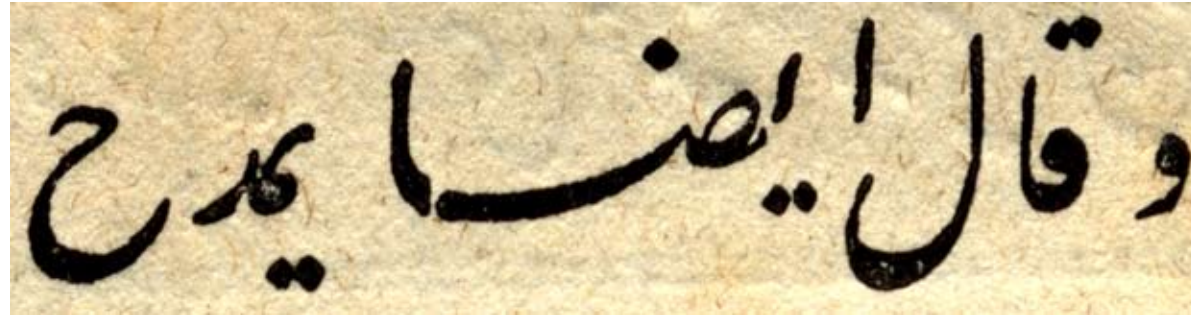 وقال ايضا يمدح